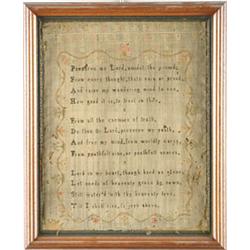 Preserve me Lord, amidst the
From every thought, that's vain or proud,
And raise my wandering mind to see,
How good it is, to trust in thee,
From all the enemies of truth,
Do thou O Lord, preserve my youth,
And free my mind, from worldly
From youthfull sins, or youthfull
Lord in my heart, though hard as
Let seeds of heavenly grace be sown,
Still water'd with the heavenly
Till I shall rise, to joys above,